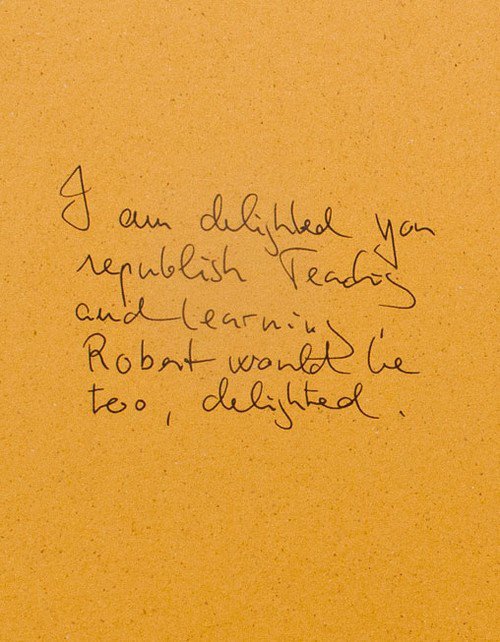 I am delighted you
republish Teaching
and learning,
Robert would be
too, delighted.